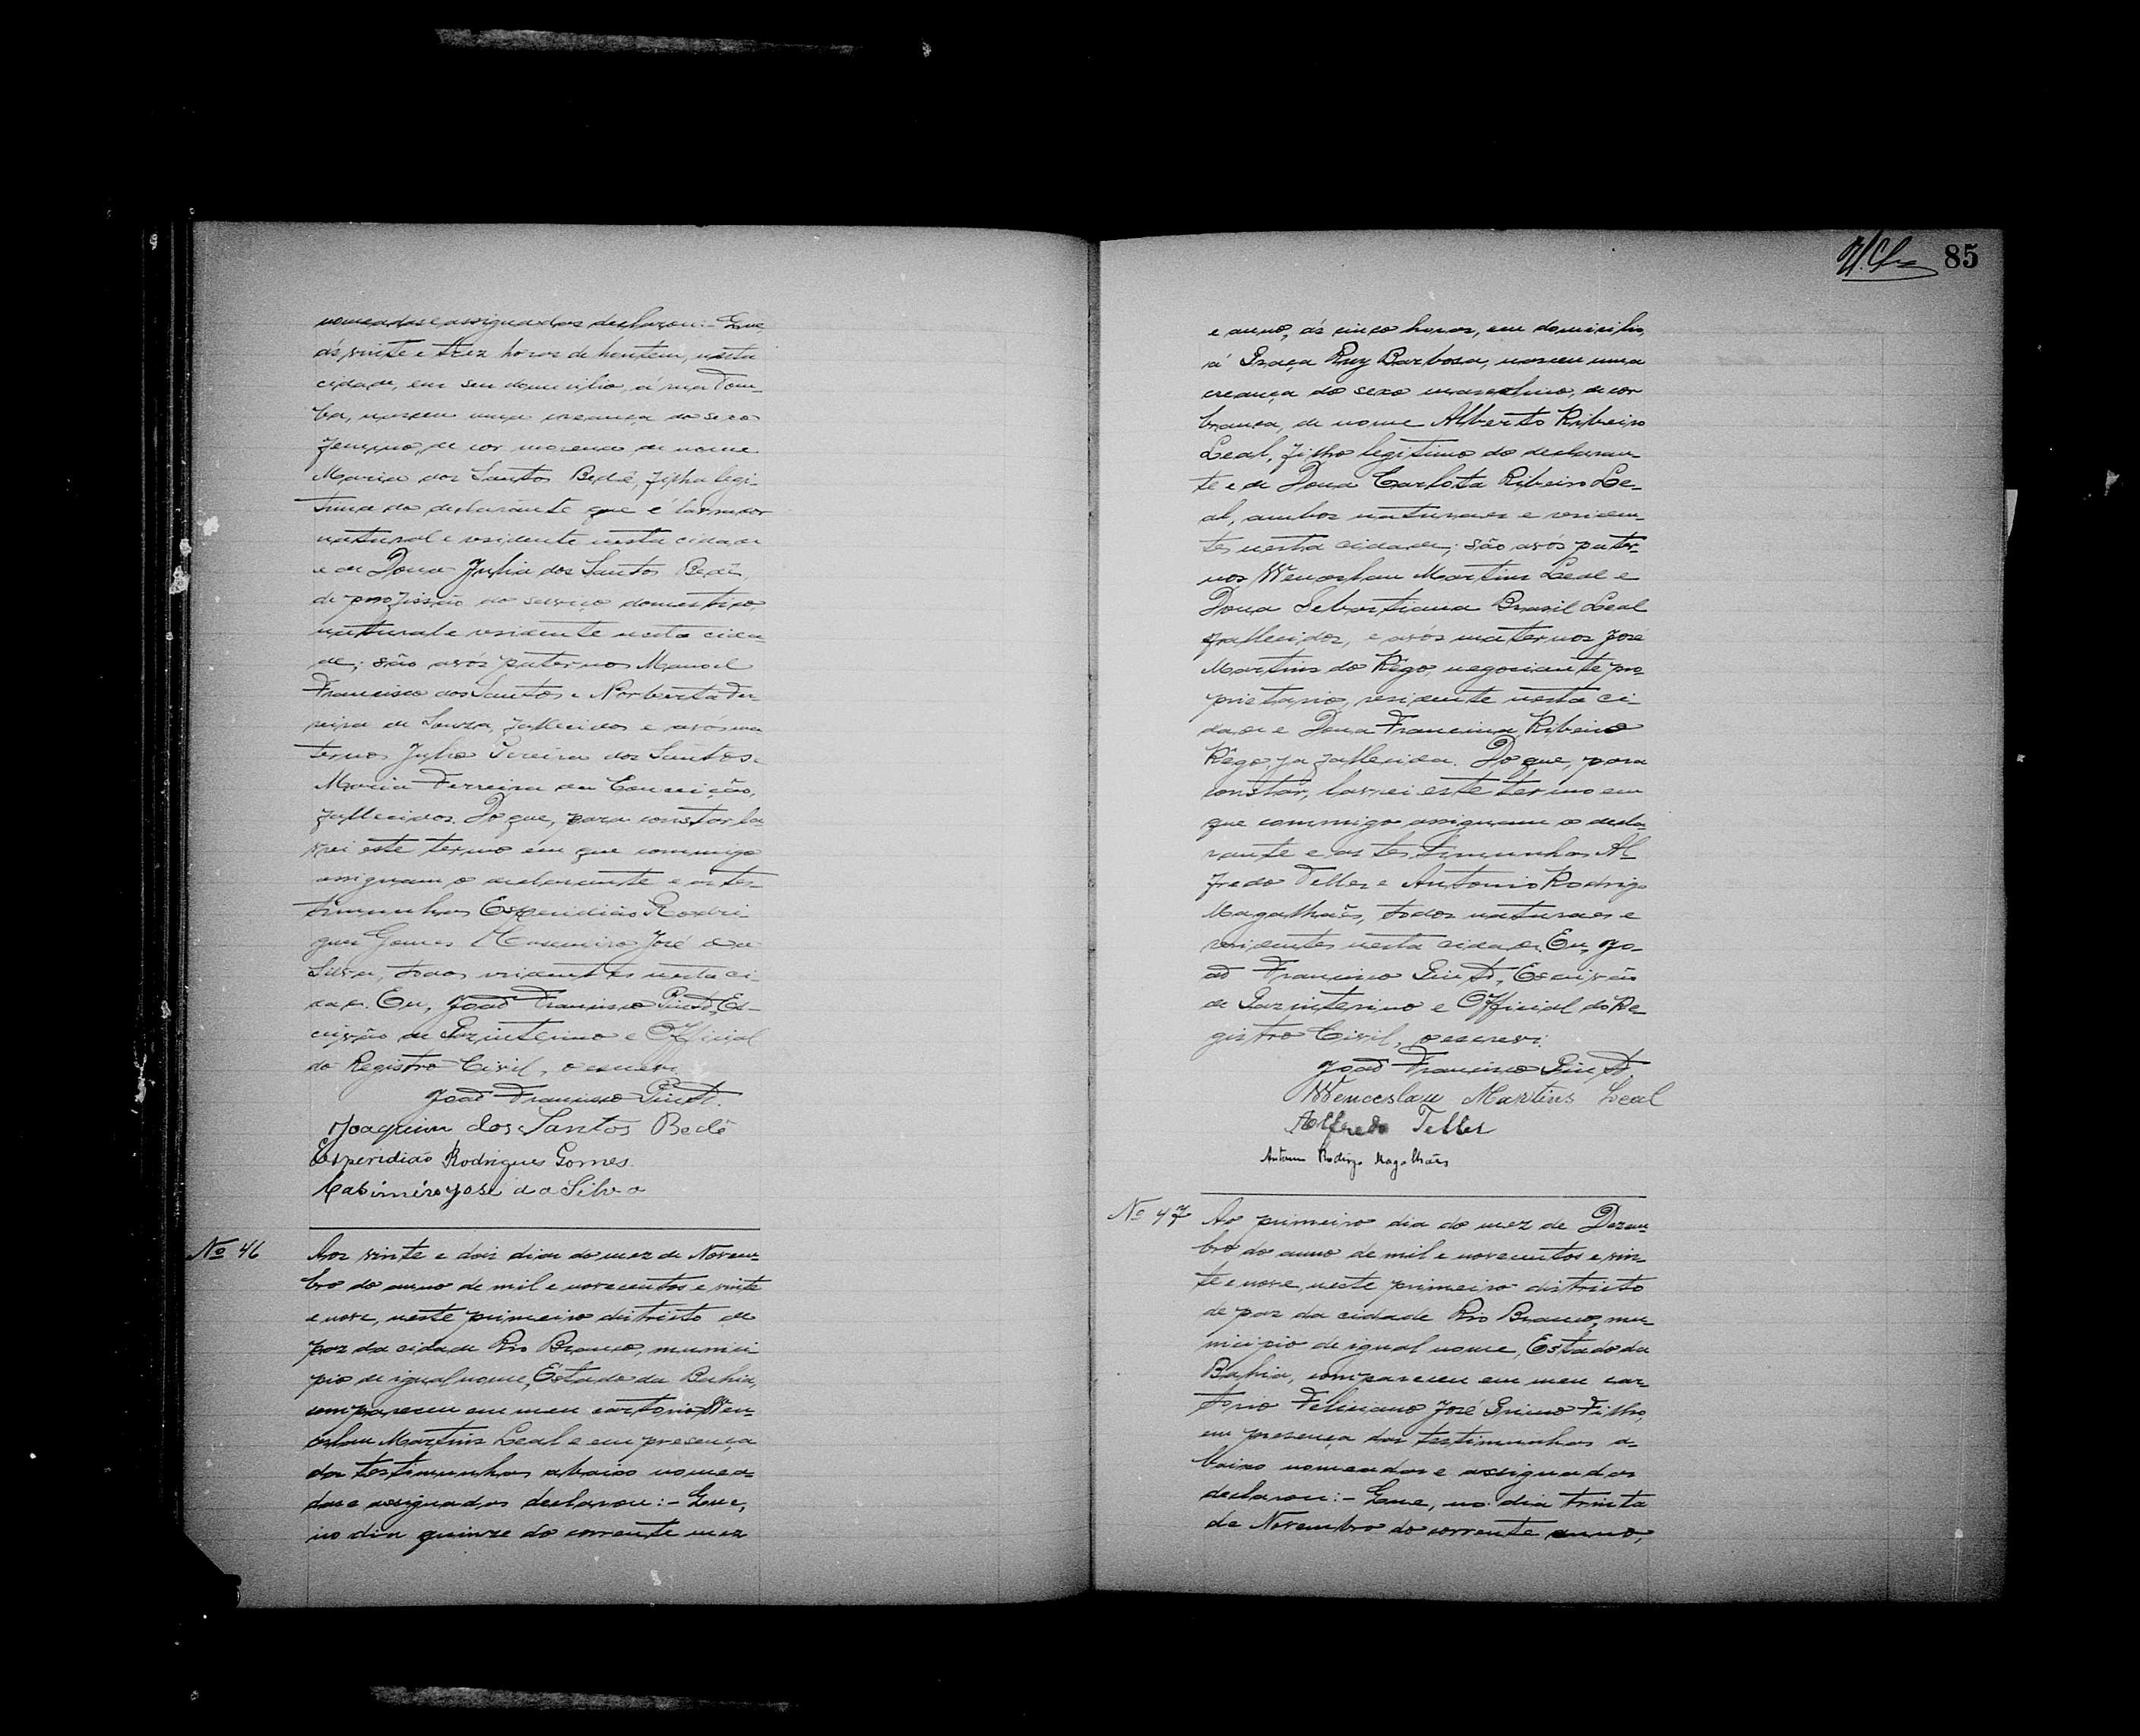 nomeadas e assignadas declarou:- Que,
ás vinte e trez horas de hontem, nesta
cidade, em seu domicilio, á rua Tom-
ba, nasceu uma creança do sexo
feminino, de cor morena de nome
Maria dos Santos Bedê, filha legi-
tima do declarante que é lavrador
natural e residente nesta cidade
e de Dona Julia dos Santos Bedê,
de profissão do serviço domestico,
natural e residente nesta cida-
de; são avós paternos Manoel
Francisco dos Santos e Norberta Fer-
reira de Souza, fallecidos e avós ma
ternos Julio Pereira dos Santos e
Maria Ferreira da Conceição,
fallecidos. Do que, para constar la-
vrei este termo em que commigo
assignam o declarante e as tes-
timunhas Esperidião Rodri-
gues Gomes e Casemiro José da
Silva, todos residentes nesta ci-
dade. Eu, João Francisco Pinto, Es-
crivão de Paz interino e Official
do Registro Civil, o escrevi.
João Francisco Pinto.
Joaquim dos Santos Bedê
Esperidião Rodrigues Gomes.
Casimiro José da Silva
Nº 46
Aos vinte e dois dias do mez de Novem-
bro do anno de mil e novecentos e vinte
e nove, neste primeiro districto de
paz da cidade Rio Branco, munici-
pio de igual nome, Estado da Bahia,
compareceu em meu cartorio Wen-
ceslau Martins Leal e em presença
das testimunhas abaixo nomea-
das e assignadas declarou:- Que,
no dia quinze do corrente mez
85
e anno, ás cinco horas, em domicilio,
á Praça Ruy Barbosa, nasceu uma
creança do sexo masculino, de cor
branca, de nome Alberto Ribeiro
Leal, filho legitimo do declaran-
te e de Dona Carlota Ribeiro Le-
al, ambos naturaes e residen-
tes nesta cidade; são avós pater-
nos Wenceslau Martins Leal e
Dona Sebastiana Brasil Leal
fallecidos, e avós maternos José
Martins do Rêgo, negociante pro-
prietario, residente nesta ci-
dade e Dona Francina Ribeiro
Rêgo, já fallecida. Do que, para
constar, lavrei este termo em
que commigo assignam o decla-
rante e as testimunhas Al-
fredo Teller e Antonio Rodrigo
Magalhães, todos naturaes e
residentes nesta cidade. Eu, Jo-
ão Francisco Pinto, Escrivão
de Paz interino e Official do Re-
gistro Civil, o escrevi.
João Francisco Pinto.
Wenceslau Martins Leal
Alfredo Teller
Antonio Rodrigo Magalhães
Nº 47
Ao primeiro dia do mez de Dezem-
bro do anno de mil e novecentos e vin-
te e nove, neste primeiro districto
de paz da cidade Rio Branco, mu-
nicipio de igual nome, Estado da
Bahia, compareceu em meu car-
torio Feliciano José Primo Filho,
em presença das testimunhas a-
baixo nomeadas e assignadas
declarou:- Que, no dia trinta
de Novembro do corrente anno,